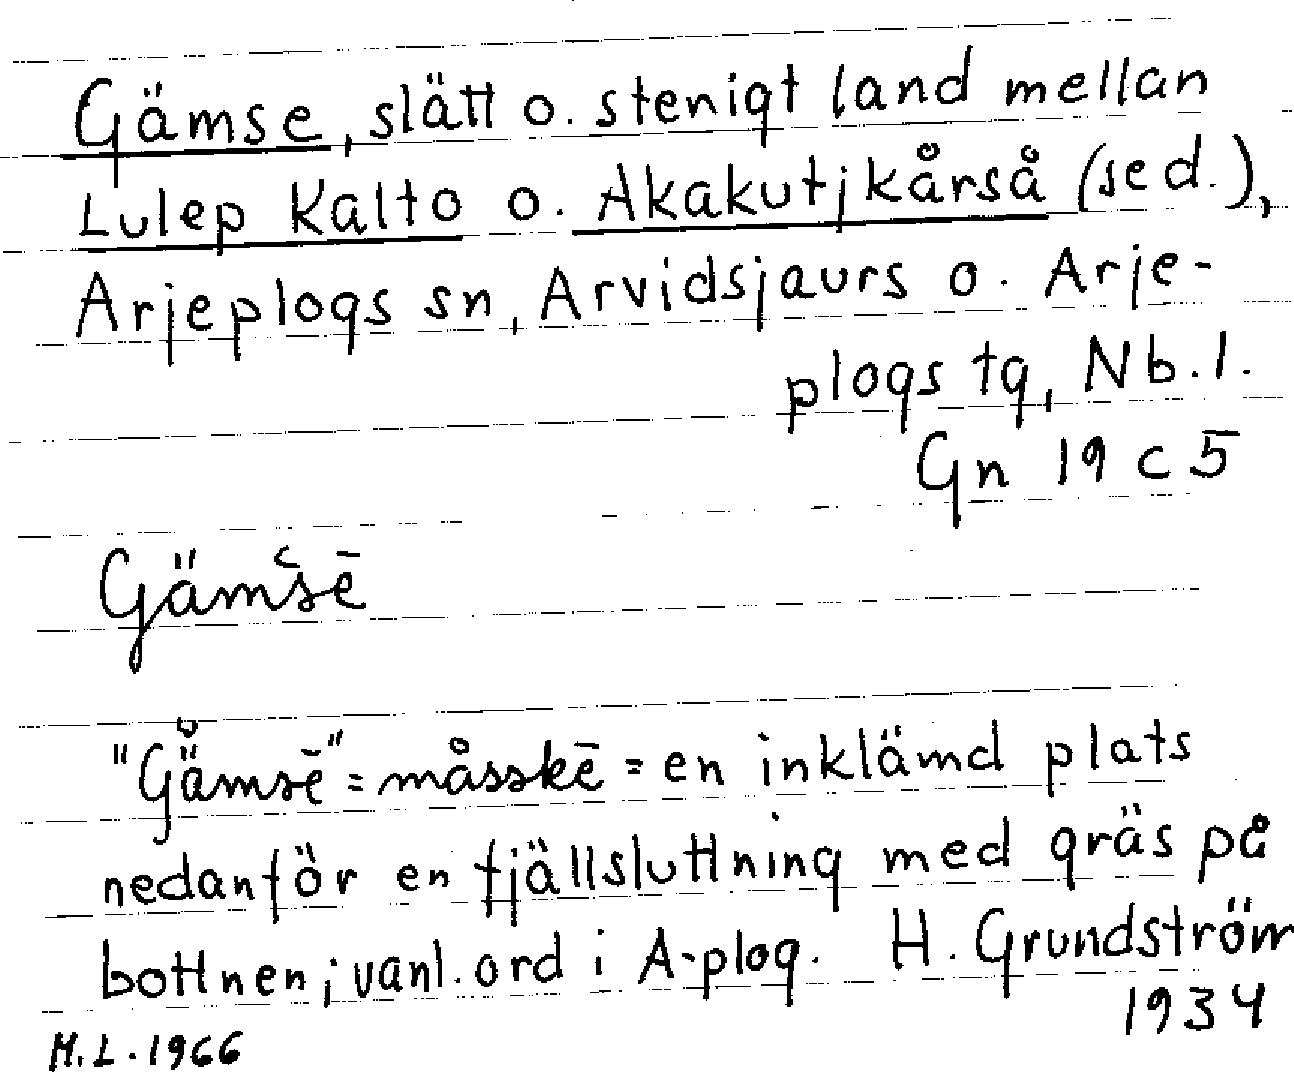 Gämse, slätt o. stenigt land mellan
Lulep Kalto o. Akakutjkårså (se d.),
Arjeplogs sn, Arvidsjaurs o. Arje-
plogs tg, Nb.l.
Gn 19 c 5
Gämśē
"Gämsē" = måsskē = en inklämd plats
nedanför en fjällsluttning med gräs på
bottnen; vanl. ord i A-plog. H. Grundström
1934
M.L. 1966